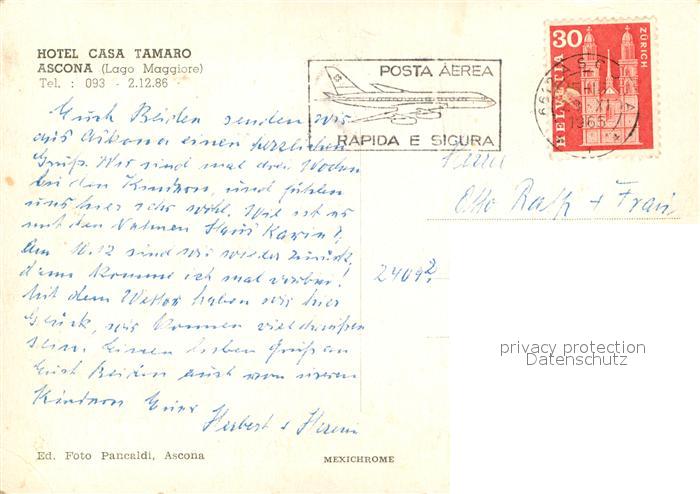 HOTEL CASA TAMARO
ASCONA (Lago Maggiore)
Tel. : 093 - 2.12.86
POSTA AEREA
RAPIDA E SICURA
30
HELVETIA
ZÜRICH
1966
Euch Beiden senden wir
aus Askona einen herzlichen
Gruß. Wir sind mal drei Wochen
bei den Kindern, und fühlen
uns hier sehr wohl. Wie ist es
mit den Haus
Am 10.12 sind wir wieder zurück,
dann komme ich mal vorbei!
Mit dem Wetter haben wir hier
Glück, wir können viel draußen
sein. Einen lieben Gruß an
Euch Beiden auch von unseren
Kindern Eure
Herbert +
Herrn
Otto + Frau
2409
privacy protection
Datenschutz
Ed. Foto Pancaldi, Ascona
MEXICHROME